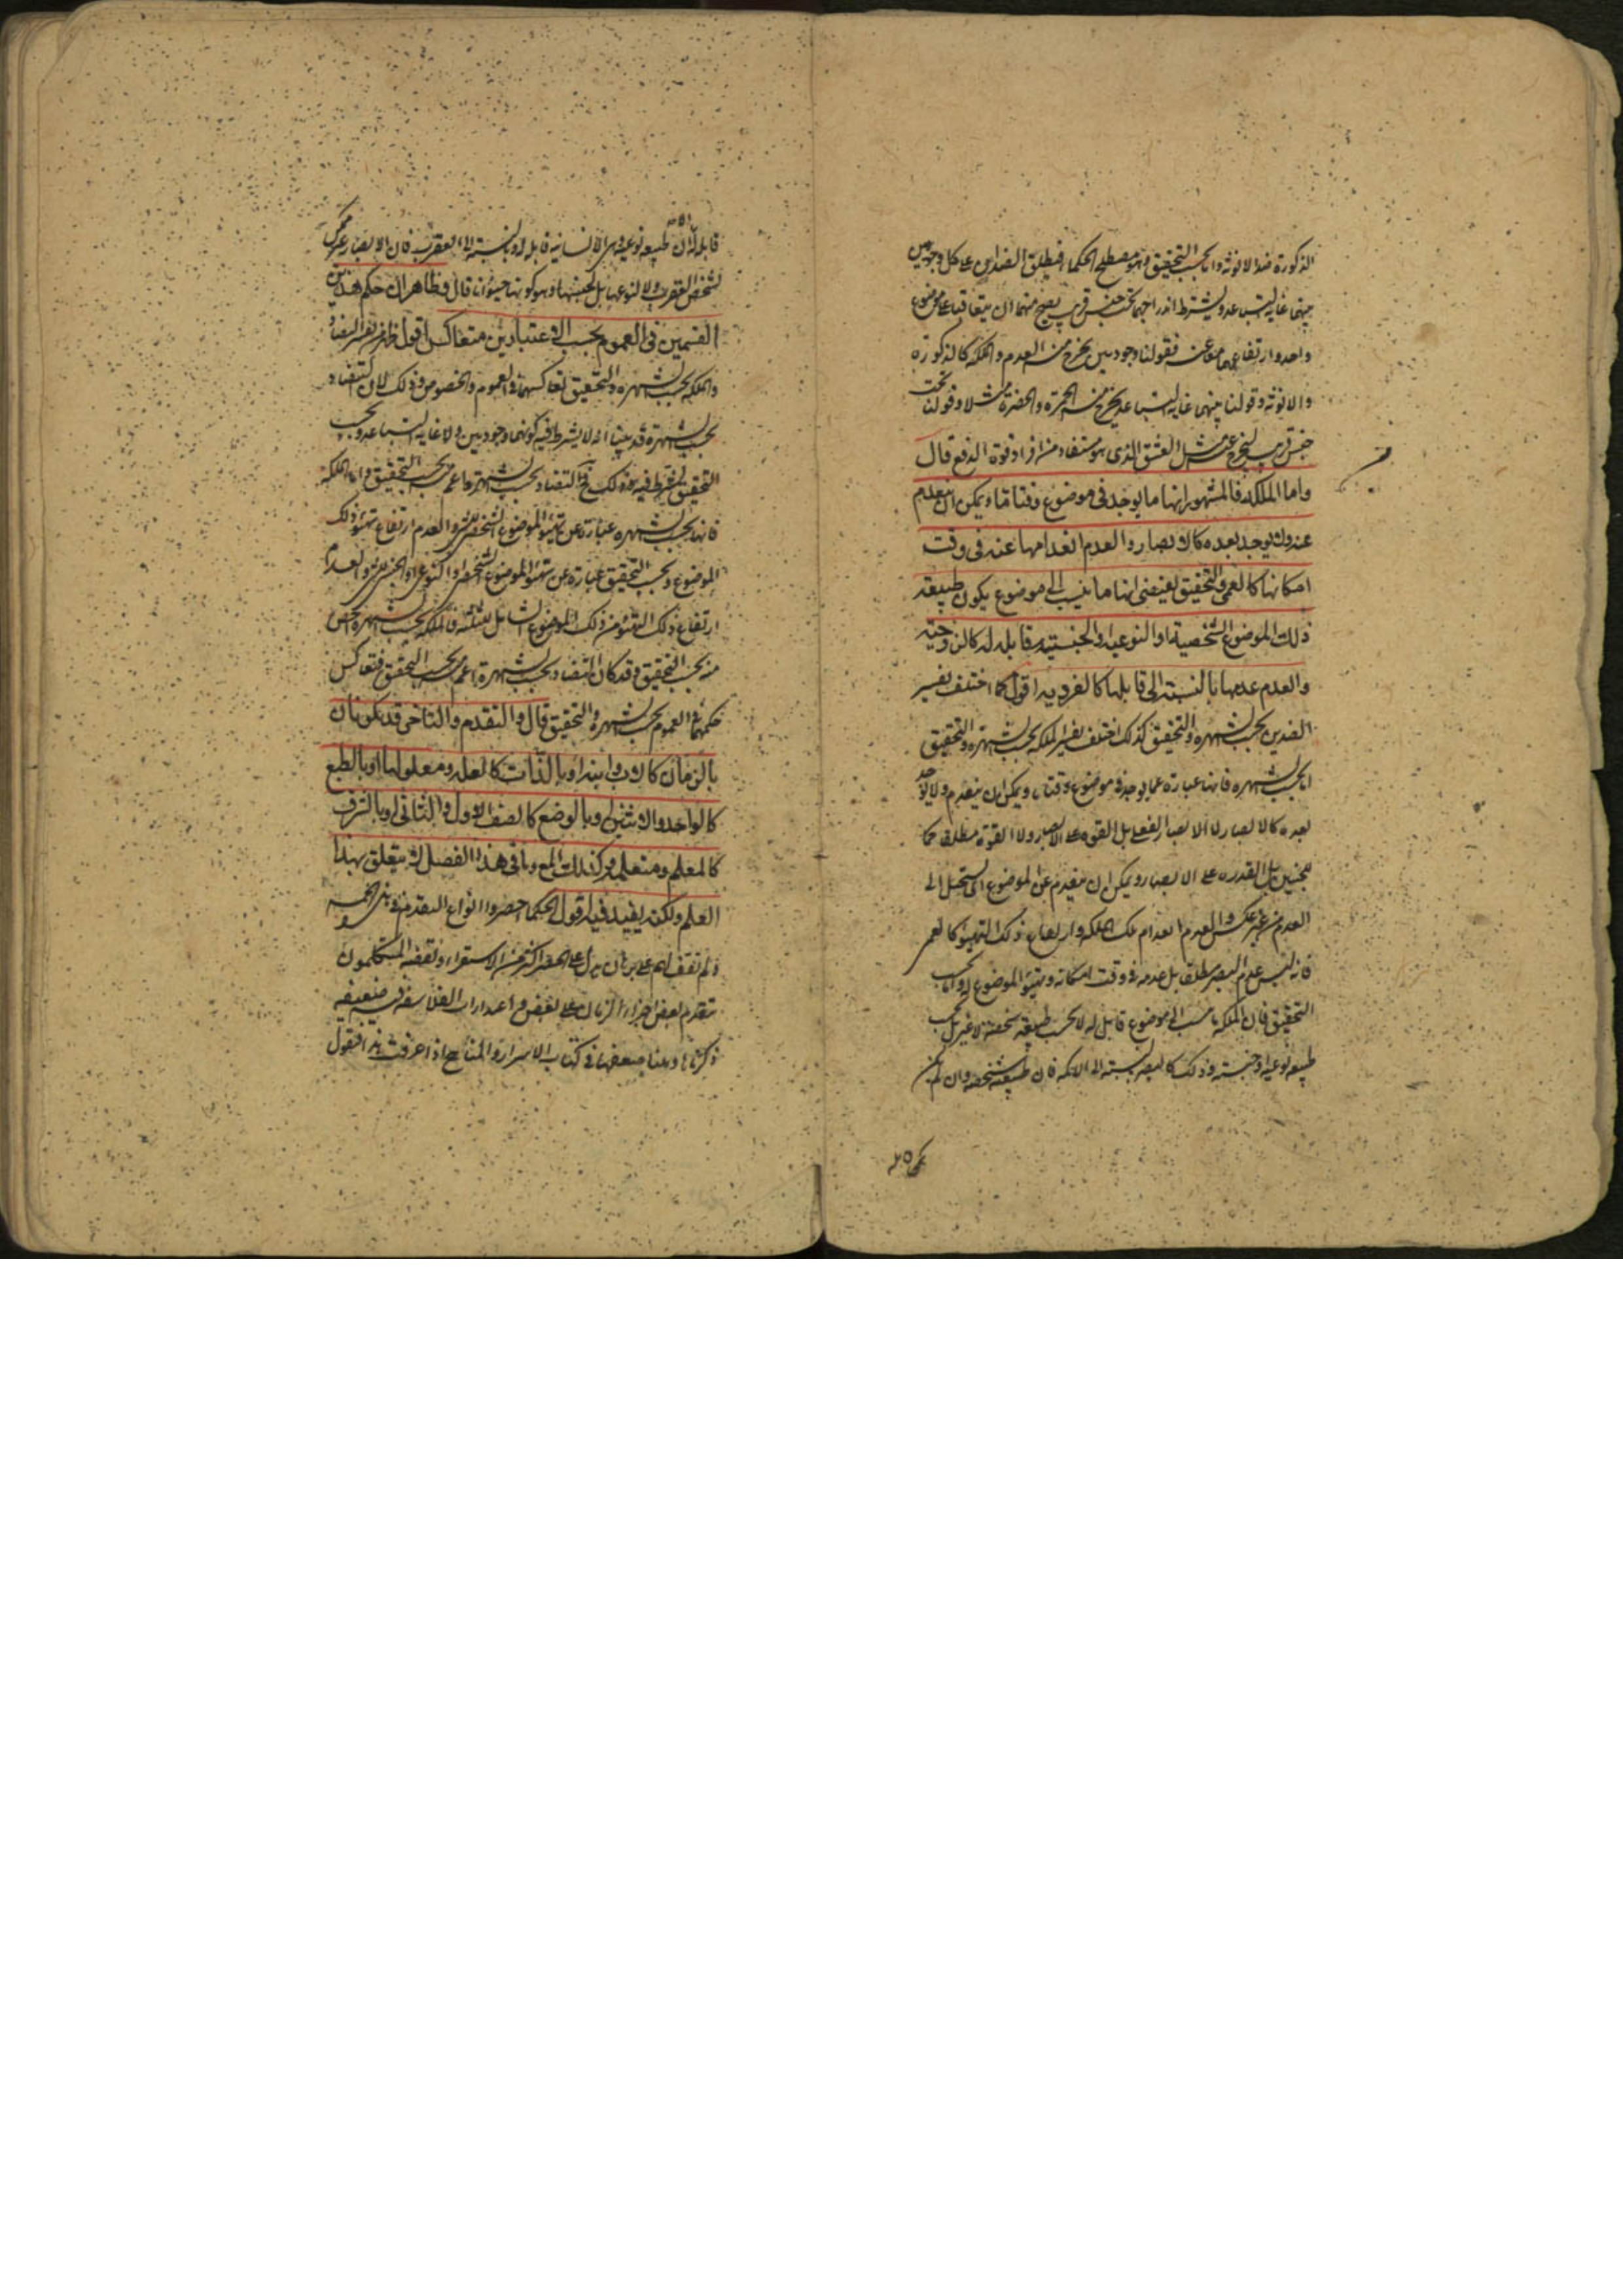 الذكورة ضد الانوثة واما بحسب التحقيق وهو مصطلح الحكماء فيطلق الضدان على كل وجوديين
بينهما غاية التباعد ويشترط اندراجهما تحت جنس قريب يصح منهما ان يتعاقبا على موضوع
واحد وارتفاعهما معا عنه فقولنا وجوديين يخرج منه العدم والملكة كالذكورة
والانوثة وقولنا بينهما غاية التباعد يخرج منه الحمرة والخضرة مثلا وقولنا تحت
جنس قريب ليخرج عنه مثل العشق الذي هو مستفاد من افراد قوة الدفع قال
واما الملكة فالمشهور انها ما يوجد في موضوع وقتا ما ويمكن ان يعدم
عنه ولا يوجد بعده كالابصار والعدم انعدامها عنه في وقت
امكانها كالعمى والتحقيق يقتضي انها ما ينسب الى موضوع يكون طبيعة
ذلك الموضوع الشخصية او النوعية او الجنسية قابلة له كالزوجية
والعدم عدمها بالنسبة الى قابلها كالفردية اقول كما اختلف تفسير
الضدين بحسب الشهرة والتحقيق كذلك اختلف تفسير الملكة بحسب الشهرة والتحقيق
اما بحسب الشهرة فانها عبارة عما يوجد في موضوع وقتا ما ويمكن ان ينعدم ولا يوجد
بعده كالابصار لا الابصار بالفعل بل القوة على الابصار ولا القوة مطلقا كما
للجنين بل القدرة على الابصار ويمكن ان ينعدم عن الموضوع اي يستحيل الى
العدم من غير عكس والعدم انعدام تلك الملكة وارتفاع ذلك التهيؤ كالعمى
فانه ليس عدم البصر مطلقا بل عدمه في وقت امكانه وتهيؤ الموضوع له واما بحسب
التحقيق فان الملكة ما ينسب الى موضوع قابل له لا بحسب طبيعة شخصه لا غير بل بحسب
طبيعة نوعية او جنسية وذلك كالبصر بالنسبة الى الاكمه فان طبيعته شخصه وان لم يكن
قابلة الا ان طبيعة نوعه وهي الانسانية قابلة له وبالنسبة الى العقرب فان الابصار غير ممكن
لشخص العقرب ولا لنوعها بل لجنسها وهو كونها حيوانا قال وظاهر ان حكم هذين
القسمين في العموم بحسب الاعتبارين متعاكس اقول ظاهر من تفسير التضاد
والملكة بحسب الشهرة والتحقيق تعاكسهما في العموم والخصوص وذلك لان التضاد
بحسب الشهرة قد بينا انه لا يشترط فيه كونهما وجوديين ولا غاية التباعد وبحسب
التحقيق يشترط فيه ذلك فالتضاد بحسب الشهرة اعم منه بحسب التحقيق واما الملكة
فانها بحسب الشهرة عبارة عن تهيؤ الموضوع الشخصي للشيء والعدم ارتفاع تهيؤ ذلك
الموضوع وبحسب التحقيق عبارة عن تهيؤ الموضوع الشخصي او النوعي او الجنسي للشيء والعدم
ارتفاع ذلك التهيؤ من ذلك الموضوع الشامل للثلثة فالملكة بحسب الشهرة اخص
منه بحسب التحقيق وقد كان التضاد بحسب الشهرة اعم منه بحسب التحقيق فتعاكس
حكمهما في العموم بحسب الشهرة والتحقيق قال والتقدم والتاخر قد يكونان
بالزمان كالاب وابنه او بالذات كالعلة ومعلولها او بالطبع
كالواحد والاثنين او بالوضع كالصف الاول والثاني او بالشرف
كالمعلم ومتعلمه وكذلك المع وباقي هذا الفصل لا يتعلق بهذا
العلم ولكنه يفيد فيه اقول الحكماء حصروا انواع التقدم في هذه الخمسة
ولم نقف لهم على برهان يدل على الحصر اكثر من الاستقراء ونقضه المتكلمون
بتقدم بعض اجزاء الزمان على بعض واعتذارات الفلاسفة فيه ضعيفة
ذكرناها وبينا ضعفها في كتاب الاسرار والمناهج اذا عرفت هذا فنقول